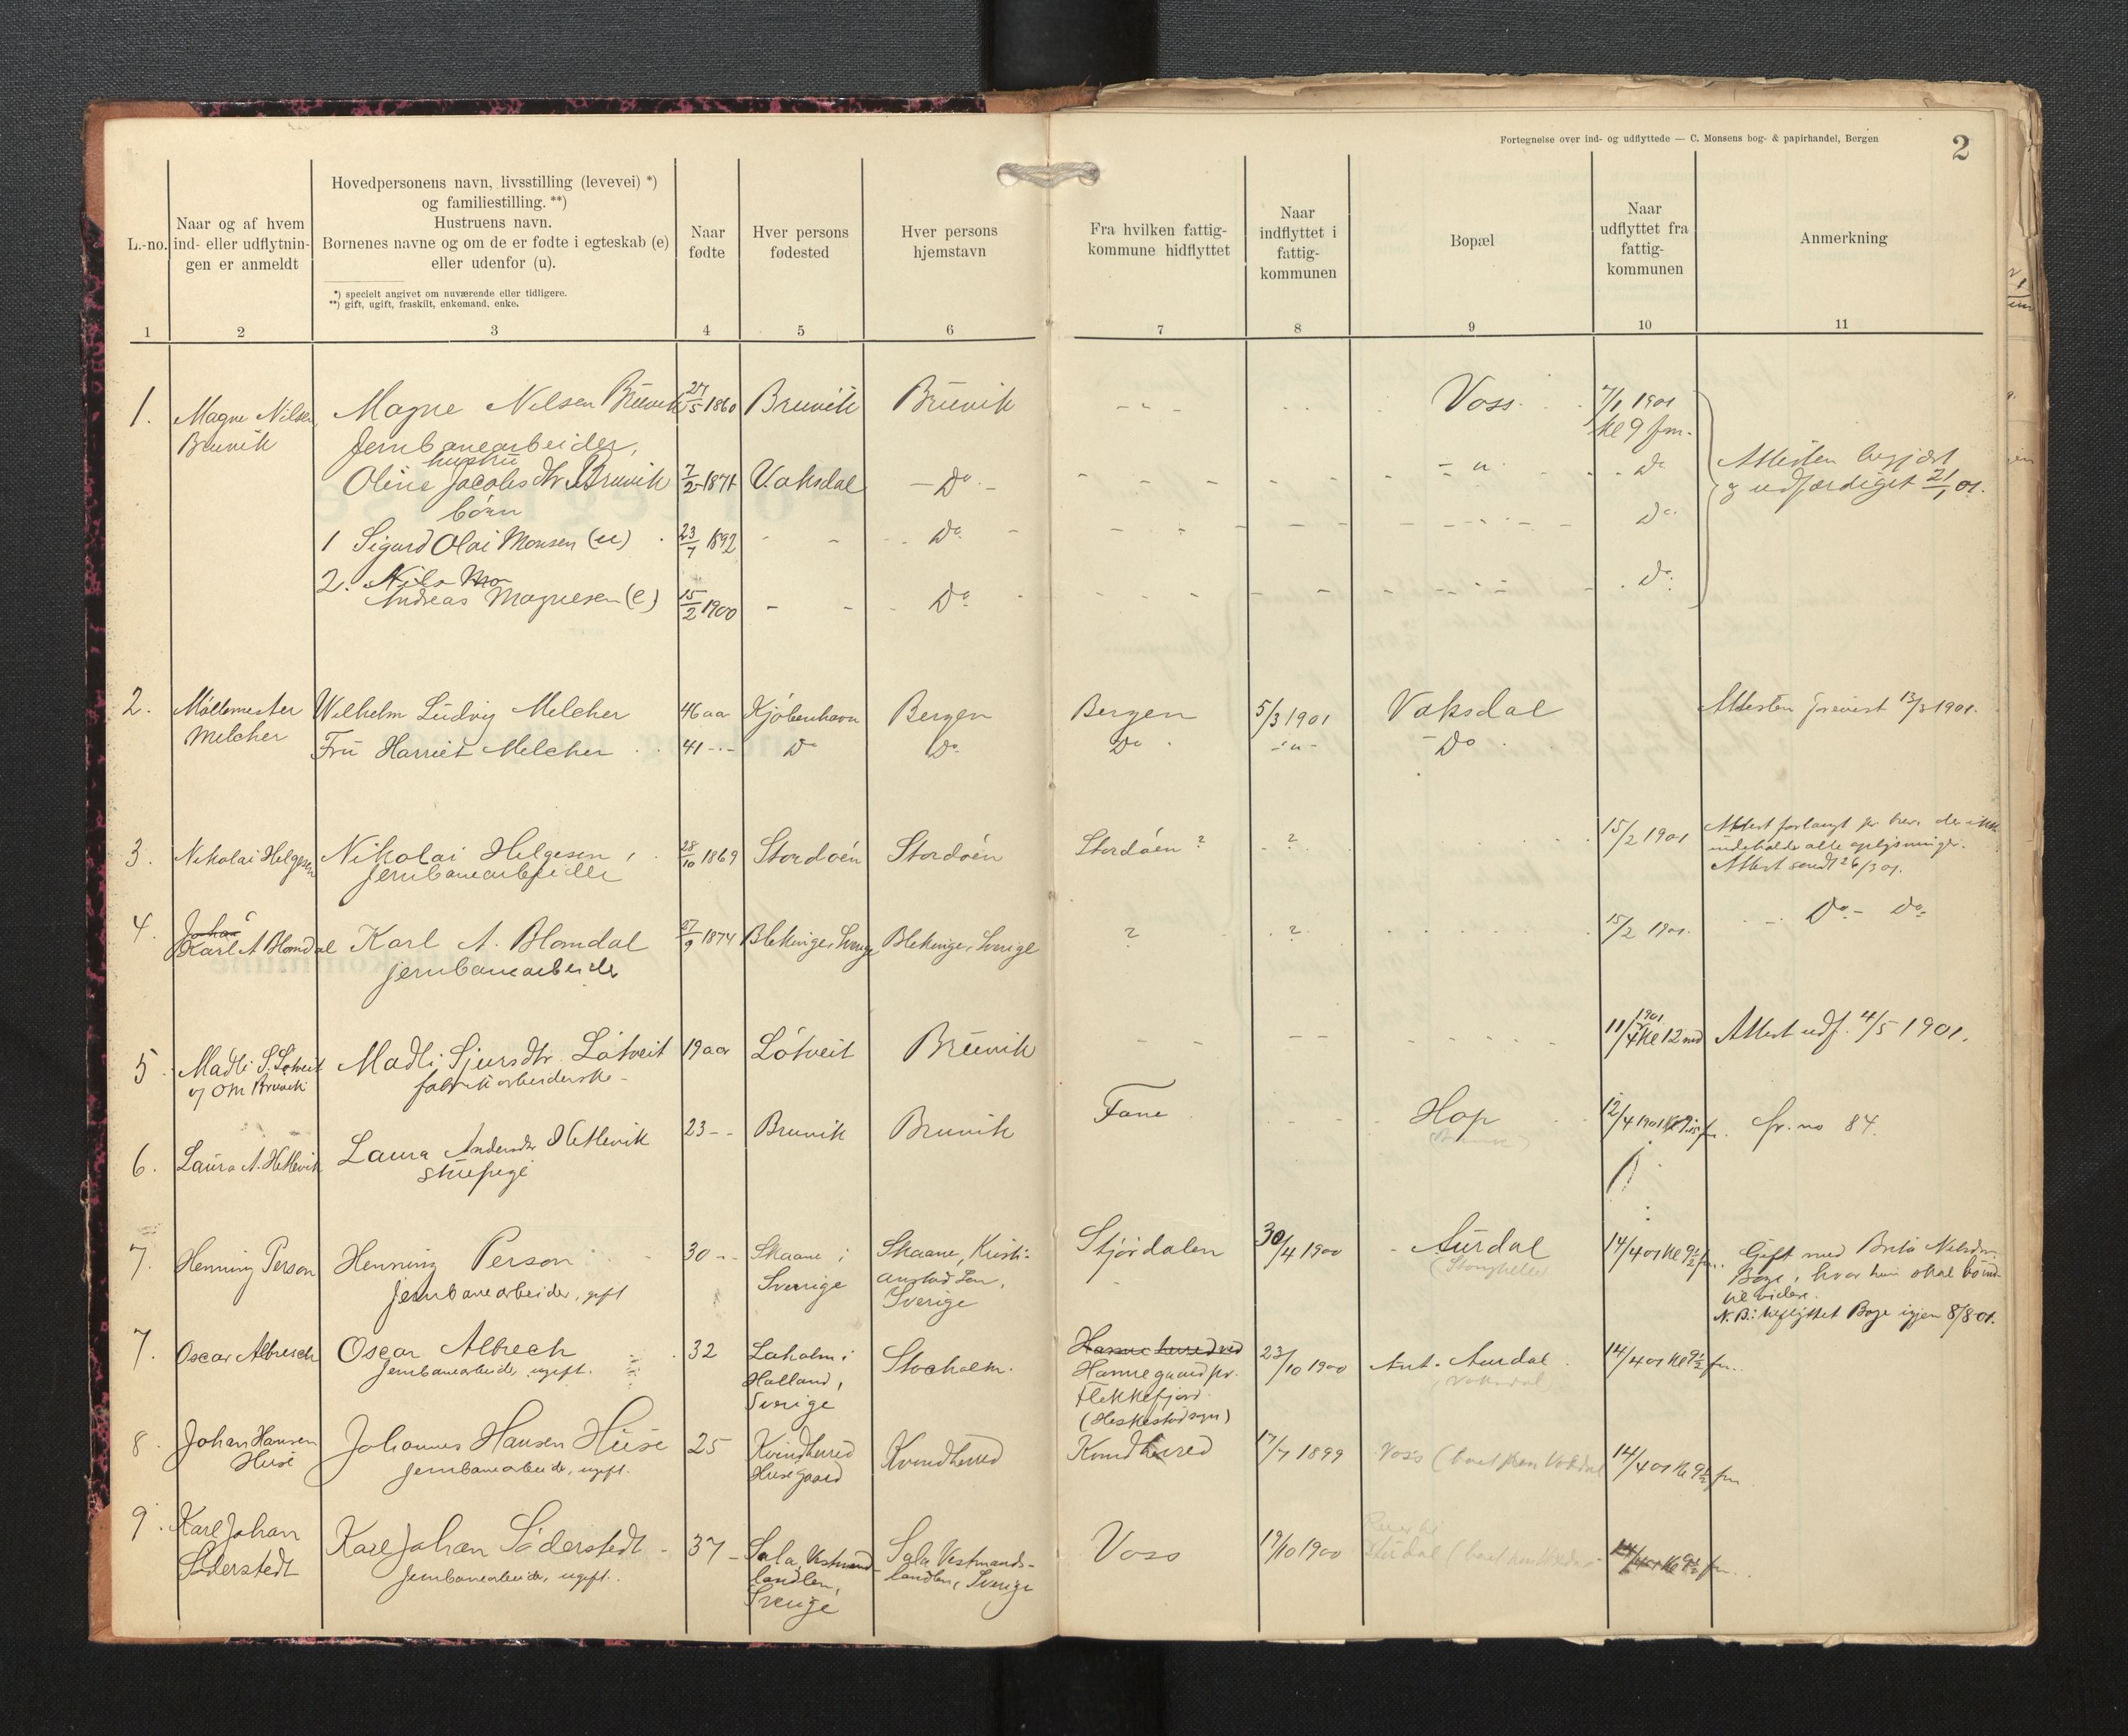 Fortegnelse over ind- og udflyttede — C. Monsens bog- & papirhandel, Bergen
2
L.-no.
Naar og af hvem
ind- eller udflytnin-
gen er anmeldt
Hovedpersonens navn, livsstilling (levevei) *)
og familiestilling. **)
Hustruens navn.
Børnenes navne og om de er fødte i egteskab (e)
eller udenfor (u).
*) specielt angivet om nuværende eller tidligere.
**) gift, ugift, fraskilt, enkemand, enke.
Naar
fødte
Hver persons
fødested
Hver persons
hjemstavn
Fra hvilken fattig-
kommune hidflyttet
Naar
indflyttet i
fattig-
kommunen
Bopæl
Naar
udflyttet fra
fattig-
kommunen
Anmerkning
1 2 3 4 5 6 7 8 9 10 11
1. Magne Nilsen Magne Nilsen Bruvik 27/5 1860 Bruvik Bruvik Voss 7/1 1901
Bruvik Jernbanearbeider, Kl 9 fm.
hustru
Oline Jacobsdtr Bruvik 2/2 1871 Vaksdal Do - " - Do Attesten begjært
og udfærdiget 21/1 01.
børn
1 Sigurd Olai Monsen (u) 23/7 1892 Do Do
2. Nils Mo
Andreas Magnesen (e) 15/2 1900 Do Do
2. Møllemester Wilhelm Ludvig Melcher 46 aa Kjøbenhavn Bergen Bergen 5/3 1901 Vaksdal Attesten 13/3 1901.
Melcher Fru Harriet Melcher 41 - - Do Do Do - " - Do
3. Nikolai Helgesen Nikolai Helgesen, 28/10 1869 Stordøen Stordøen Stordøen ? ? 15/2 1901 Attest forlangt pr brev, der ikke
jernbanearbeider indeholder alle oplysninger.
Attest sendt 26/3 01.
4. Johan
Karl A Blomdal Karl A. Blomdal 27/9 1874 Blekinge, Sverige Blekinge, Sverige ? ? 15/2 1901. Do - Do
jernbanearbeider
5 Madli S. Løtveit Madli Sjursdtr. Løtveit 19 aar Løtveit Bruvik 11/4 1901 Kl 12 md Attest udf. 4/5 1901.
v/ O M Bruvik fabrikarbeiderske
6. Laura A. Hetlevik Laura Andersdtr Hetlevik 23 - - Bruvik Bruvik Fane Hop 12/4 1901 fr. no 84.
stuepige
7. Henning Person Henning Person 30 - - Skaane i Skaane, Kristi- Stjørdalen 30/4 1900 Aurdal 14/4 01 Kl 9½ fm. Gift med Brita Nilsdtr.
Jernbanearbeider, gift Sverige anstad Len, (Stanghelle) Boge, hvor hun skal bo ind-
Sverige til videre.
N.B.: tilflyttet Boge igjen 8/8 01.
7. Oscar Albresch Oscar Albrech 32 Laholm i Stocholm. 23/10 1900 Ant. Aurdal 14/4 01 Kl 9½ fm.
Jernbanearbeider, ugift. Halland, Hannegaard pr. Vaksdal
Sverige Flekkefjord
(Heskestad sogn)
8. Johan Hansen Johannes Hansen Huse 25 Kvindherred Kvindherred Kvindherred 17/7 1899 Voss (boet paa Vaksdal 14/4 01 Kl 9½ fm
Huse Jernbanearbeider, ugift. Huse gaard
9. Karl Johan Karl Johan Söderstedt 37 - Sala, Vestmand- Sala Vestmands- Voss 19/10 1900 14/4 01 Kl 9½ fm.
Söderstedt Jernbanearbeider, ugift. landlen, landlen, Sverige
Sverige